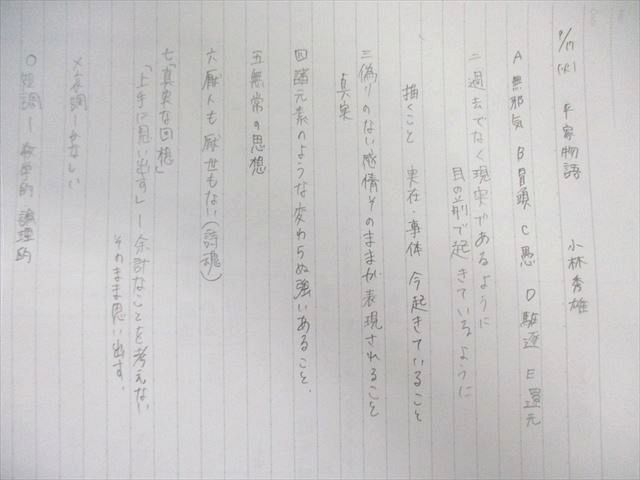 9/17(火) 平家物語 小林秀雄
A 無邪気 B 冒頭 C 愚 D 駆逐 E 還元
二 過去でなく現実であるように
目の前で起きているように
描くこと 実在・事体 今起きていること
三 偽りのない感情そのままが表現されること
真実
四 諸元素のような変わらぬ強いあること、
五 無常の思想
六 厭人も厭世もない(詩魂)
七「真実な回想」
「上手に思い出す」ー余計なことを考えない
そのまま思い出す、
×哀調ーかなしい
〇短調ー